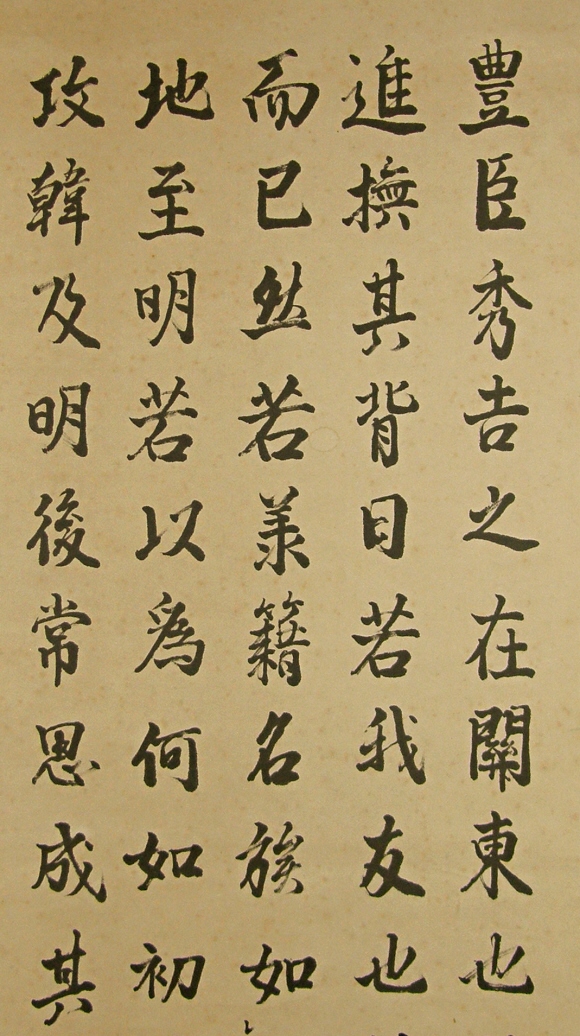 豐臣秀吉之在關東也
進撫其背曰若我友也
而已然若羕籍名族如
地至明若以為何如初
攻韓及明後常思成其